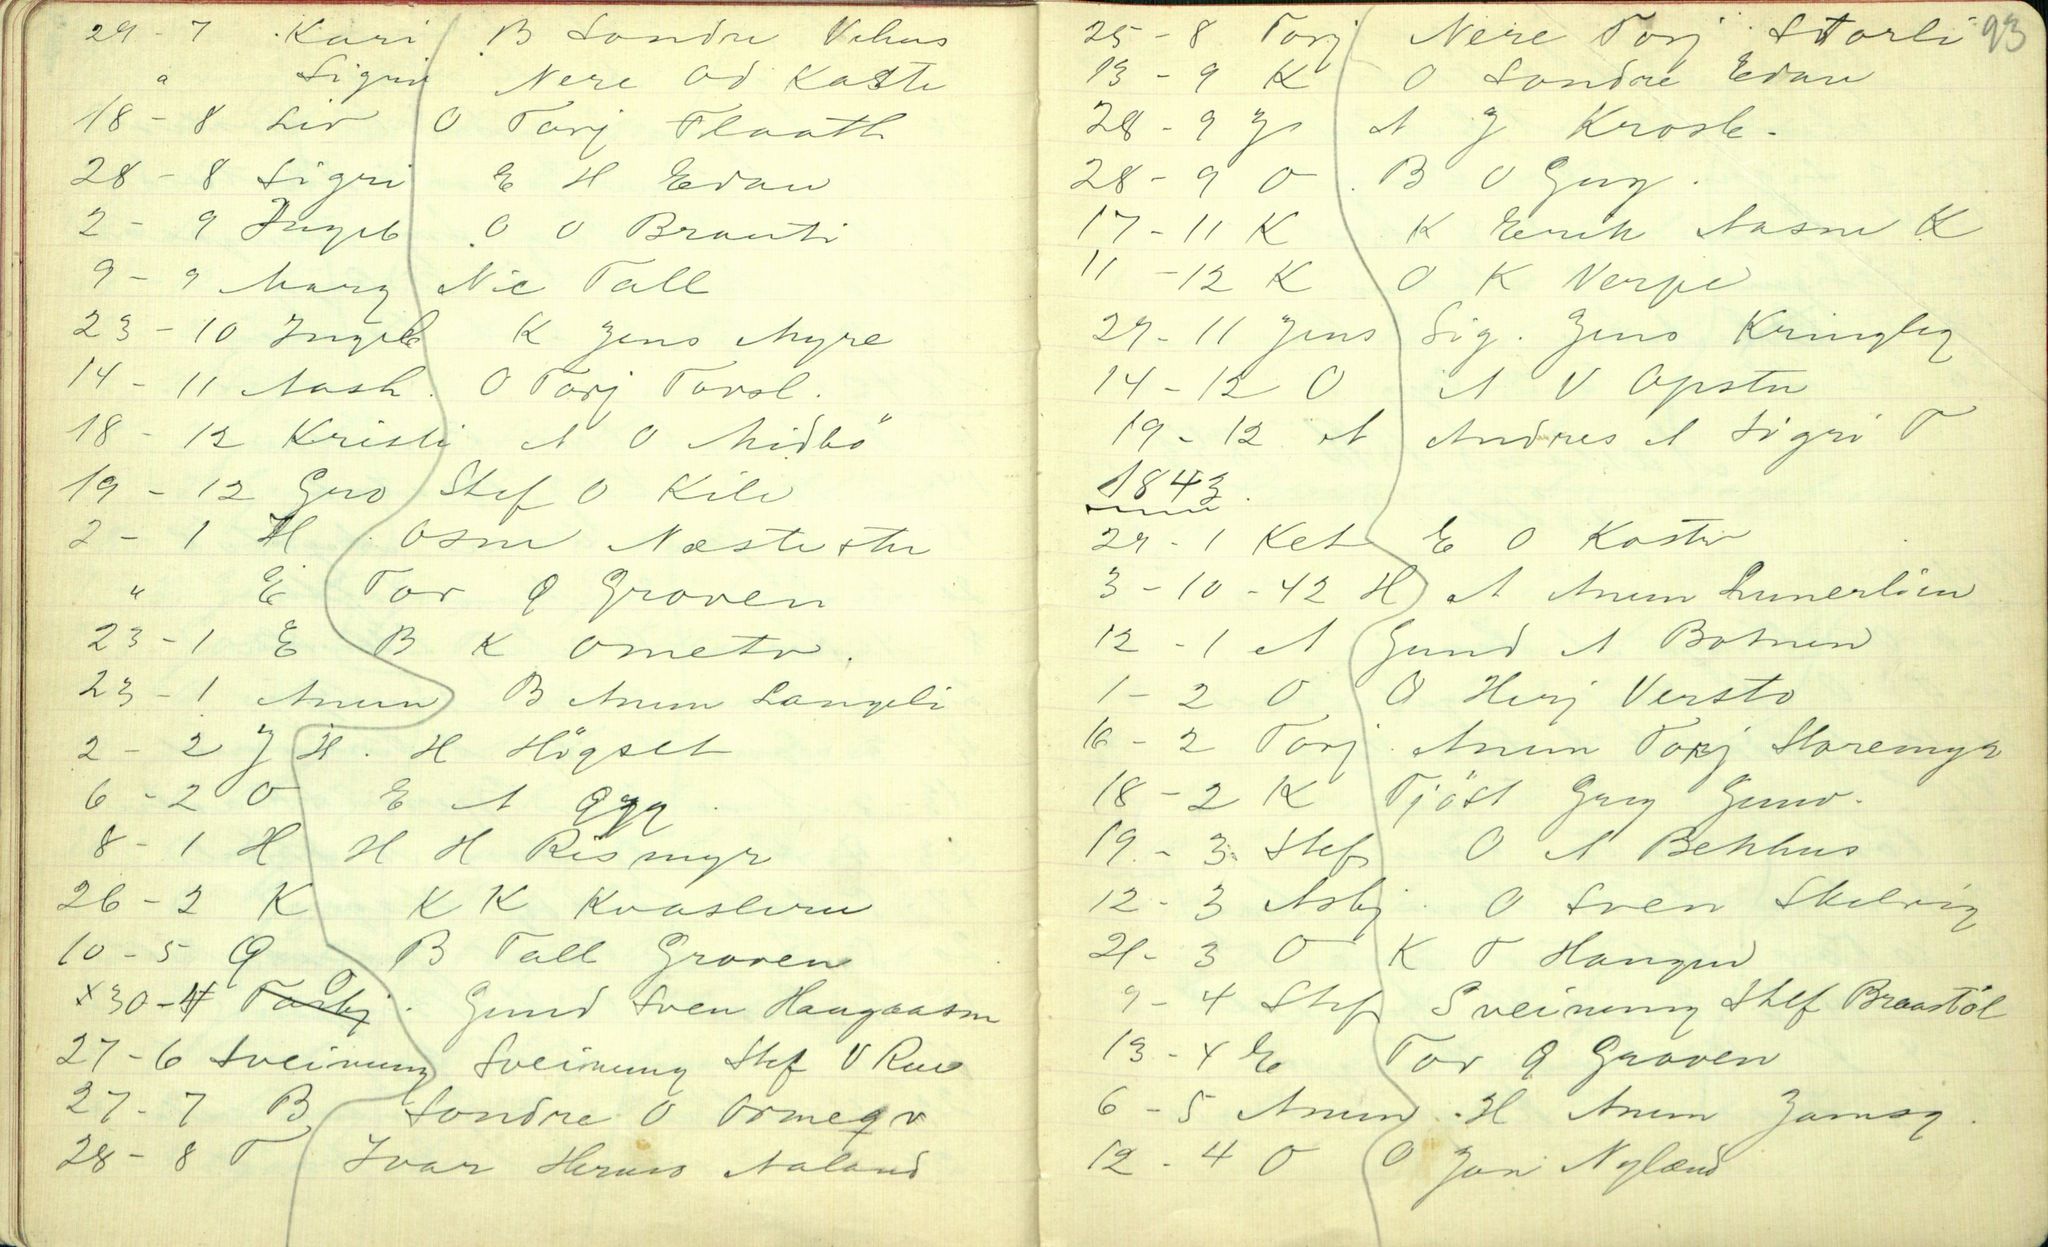 29 - 7 Kari B Sondre Vehus
" Sigri Nere Od Kaste
18 - 8 Liv O Torj Flaath
28 - 8 Sigri E H Edau
2 - 9 Ingeb O O Brauti
9 - 9 Marg Nic Tall
23 - 10 Ingeb K Jens Myre
14 - 11 Aash. O Torj Torsl.
18 - 12 Kristi A O Midbö
19 - 12 Gro Stef O Kili
2 - 1 H Osm Næstestu
" E Tor G Groven
23 - 1 E B K Ometv.
23 - 1 Anun B Anun Langeli
2 - 2 J H. H Högset
6 - 2 O E A
8 - 1 H H H Rismyr
26 - 2 K K K Kvasliru
10 - 5 G B Tall Groven
x 30 - 4 O Gund Sven Haugaasm
27 - 6 Sveinung Sveinung Stef V Rue
27 - 7 B Sondre O Ormegr
28 - 8 T Ivar Herm Aaland
93
25 - 8 Torj Nere Torj Storli
13 - 9 K O Sondre Edau
28 - 9 J A J Krosk.
28 - 9 O B O Gug.
17 - 11 K K Erik Aasm K
11 - 12 K O K Verpe
29 - 11 Jens Sig. Jens Kringleg
14 - 12 O A V Opstu
19 - 12 A Andres A Sigri T
1843.
29 - 1 Ket E O Kostv
3 - 10 - 42 H A Anun Lunerlien
12 - 1 A Gund A Botnen
1 - 2 O O Herj Versto
16 - 2 Torj. Anun Torj Storemyr
18 - 2 K Tjöst Greg Gunv.
19 - 3 Stef O A Bekhus
12 - 3 Asbj. O Sven Skelvig
21 - 3 O K T Haugen
9 - 4 Stef Sveinung Stef Braastöl
13 - 4 E Tor G Groven
6 - 5 Anun H Anun Jamsg.
12 - 4 O O Jon Nylænd